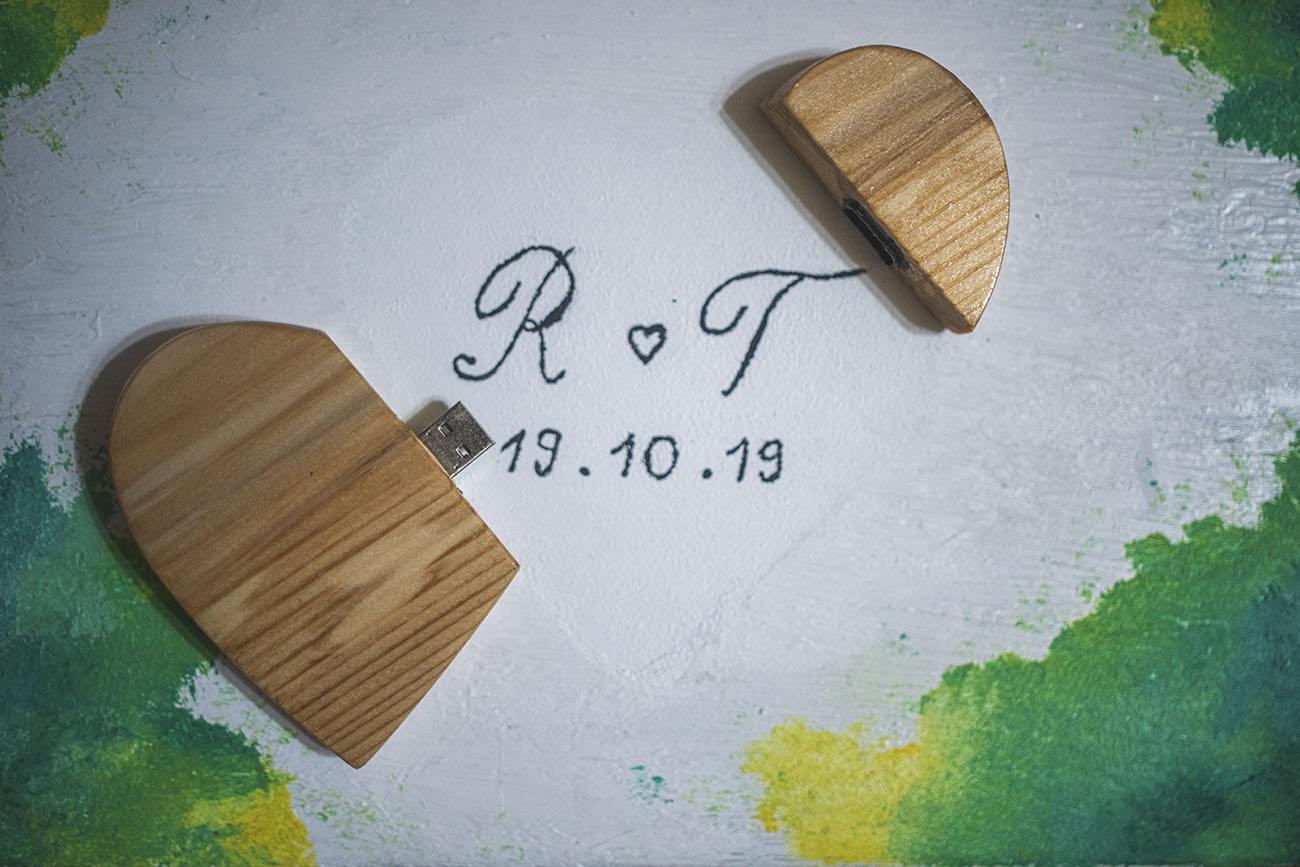 R ♥ T
19.10.19